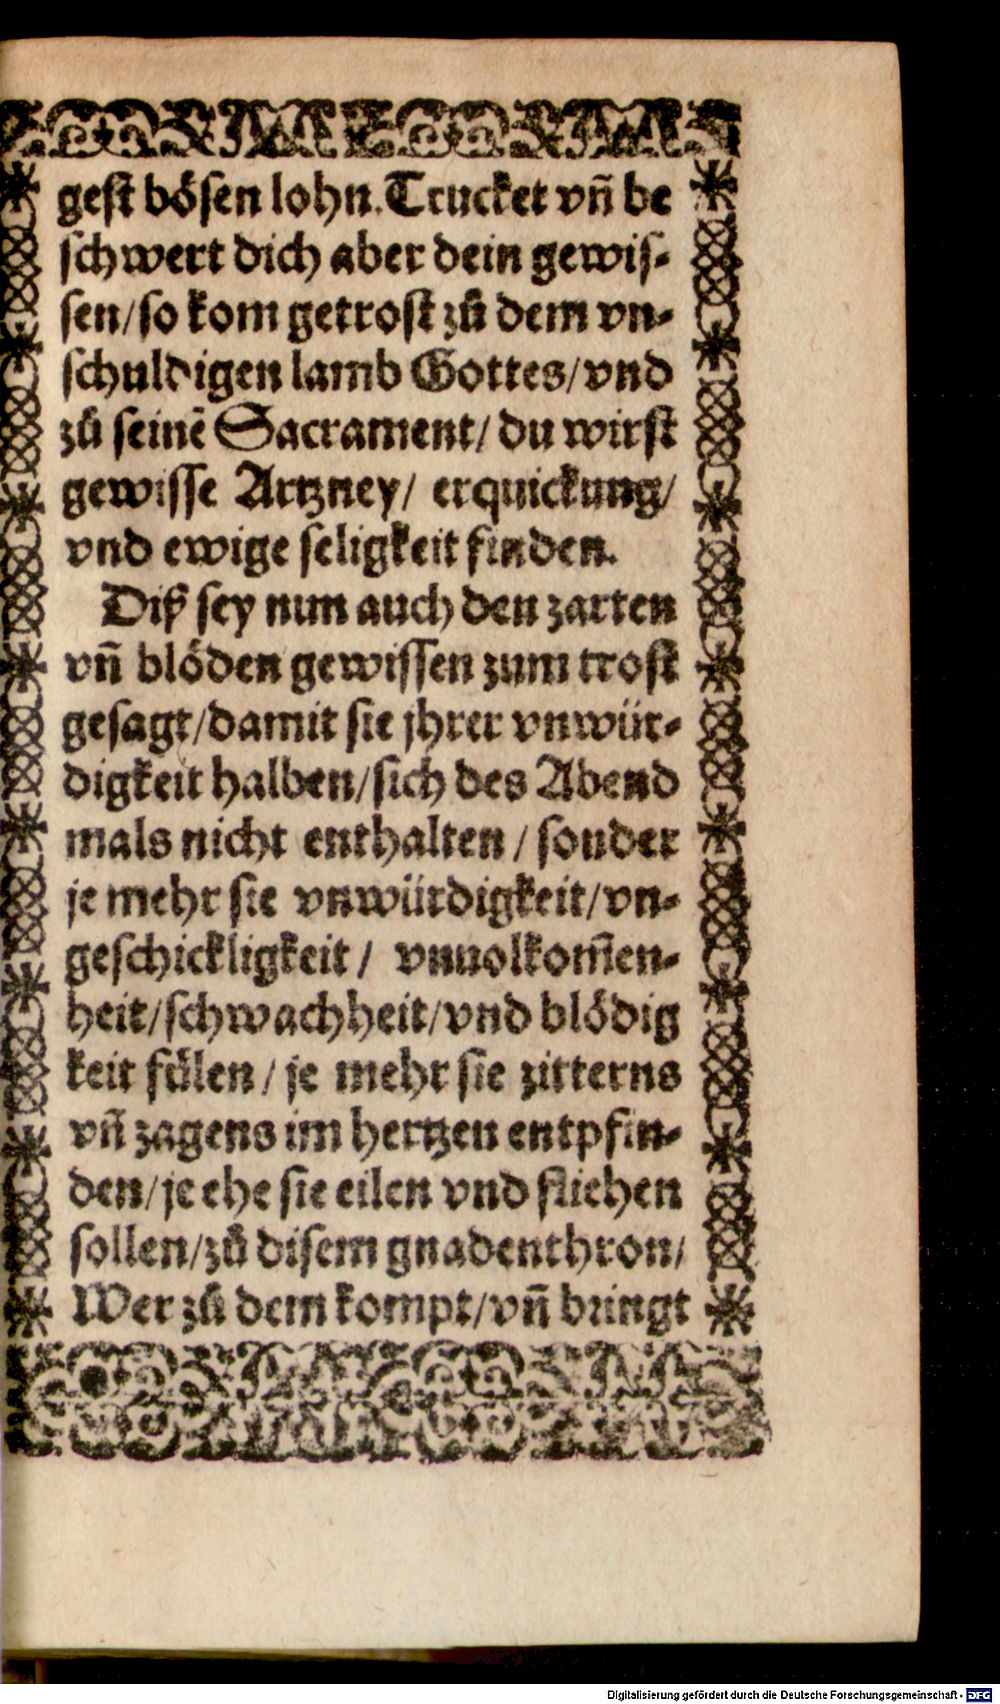 gest bösen lohn. Trucket vn̄ be
schwert dich aber dein gewis-
sen/so kom getrost zů dem vn-
schuldigen lamb Gottes/vnd
zů seinē Sacrament/ du wirst
gewisse Artzney/ erquickung/
vnd ewige seligkeit finden.
Diß sey nun auch den zarten
vn̄ blöden gewissen zum trost
gesagt/damit sie jhrer vnwür-
digkeit halben/sich des Abend
mals nicht enthalten / sonder
je mehr sie vnwürdigkeit/vn-
geschickligkeit / vnuolkom̄en-
heit/schwachheit/vnd blödig
keit fülen / je mehr sie zitterns
vn̄ zagens im hertzen entpfin-
den/je ehe sie eilen vnd fliehen
sollen/zů disem gnadenthron/
Wer zů dem kompt/vn̄ bringt
Digitalisierung gefördert durch die Deutsche Forschungsgemeinschaft - DFG